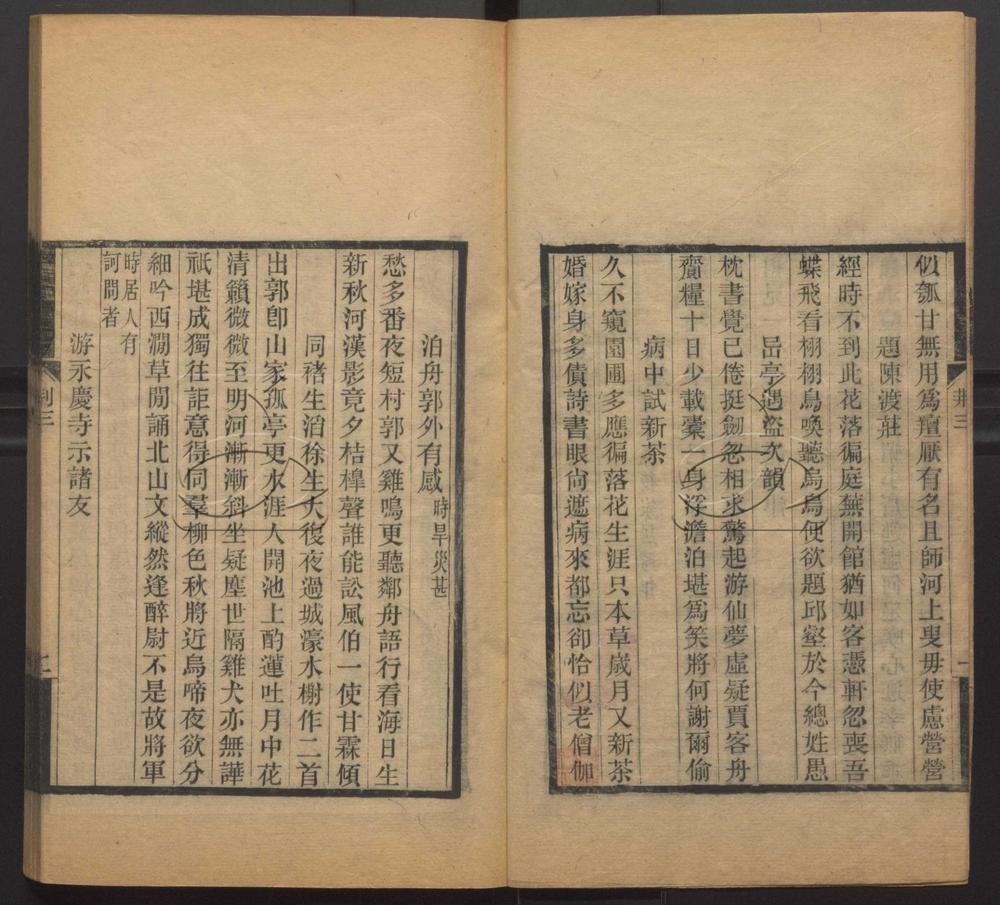 似瓠甘無用為膻厭有名且師河上叟毋使慮營營
題陳渡莊
經時不到此花落徧庭蕪開館猶如客憑軒忽喪吾
蝶飛看栩栩鳥喚聽烏烏便欲題邱壑於今總姓愚
邵亭遇盜次韻
枕書覺已倦挺劒忽相求驚起游仙夢虛疑賈客舟
齎糧十日少載橐一身浮澹泊堪為笑將何謝爾偷
病中試新茶
久不窺園圃多應徧落花生涯只本草歲月又新茶
婚嫁身多債詩書眼尙遮病來都忘卻恰似老僧伽
泊舟郭外有感時旱災甚
愁多番夜短村郭又雞鳴更聽鄰舟語行看海日生
新秋河漢影竟夕桔橰聲誰能訟風伯一使甘霖傾
同禇生㳙徐生大復夜過城濠水榭作二首
出郭卽山家孤亭更水涯人開池上酌蓮吐月中花
清籟微微至明河漸漸斜坐疑塵世隔雞犬亦無譁
祇堪成獨往詎意得同羣柳色秋將近烏啼夜欲分
細吟西澗草閒誦北山文縱然逢醉尉不是故將軍
時居人有
訶問者
游永慶寺示諸友